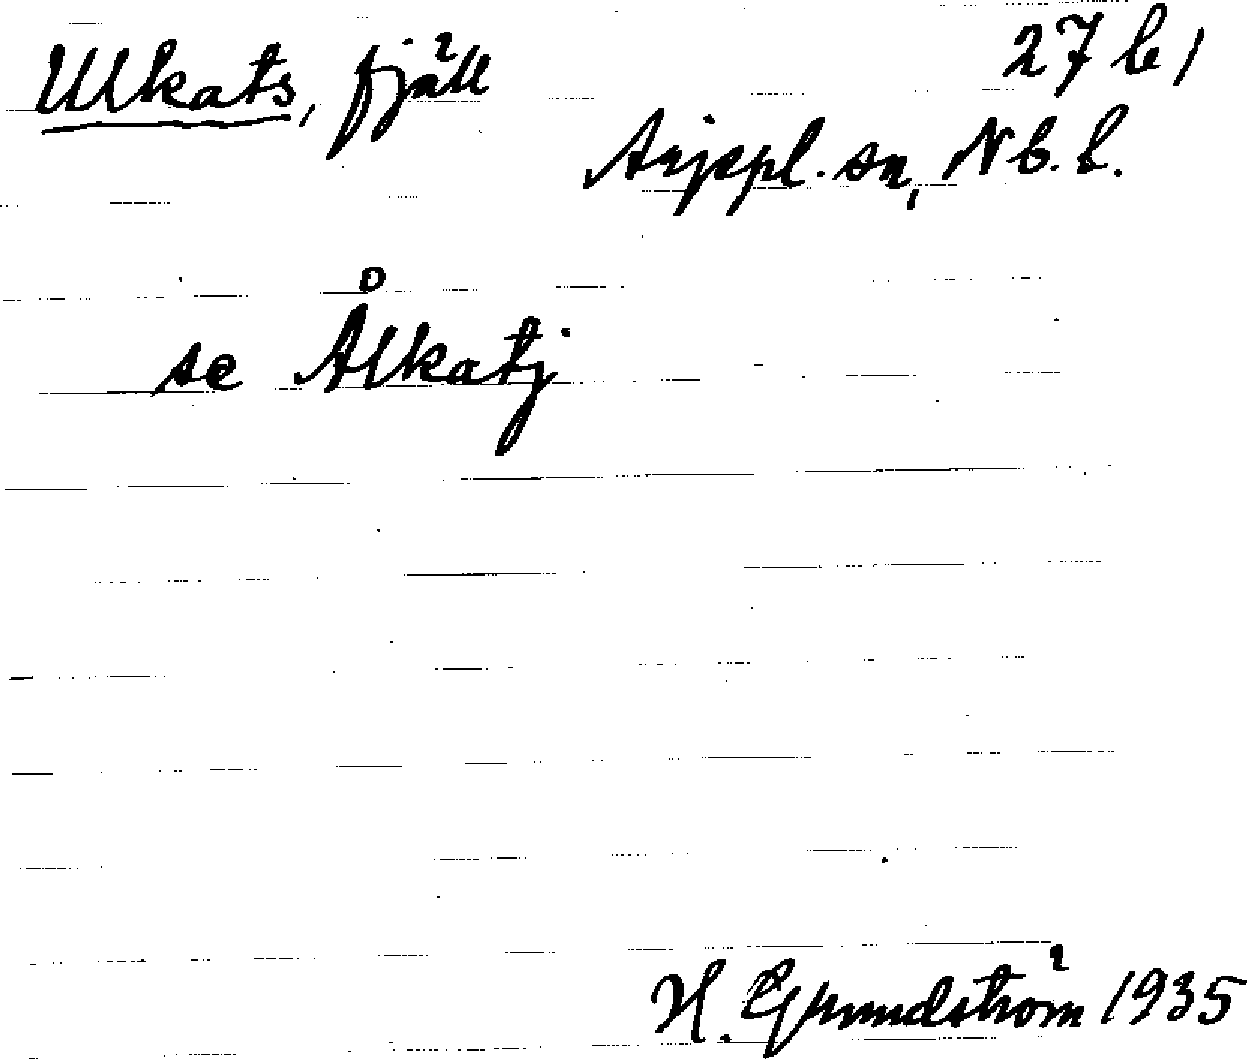 Ulkats, fjäll 27 b 1
Arjepl. sn, Nb. l.
se Ålkatj
H. Grundström 1935